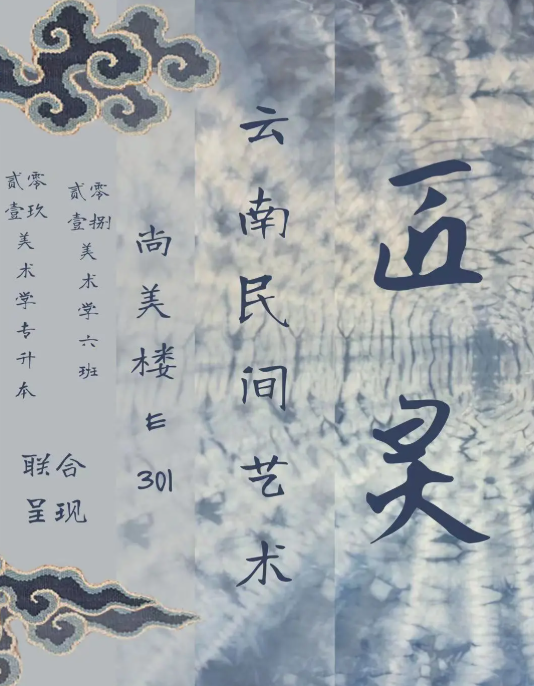 匠灵
云南民间艺术
尚美楼E301
贰零壹捌美术学六班
贰零壹玖美术学专升本
联合
呈现